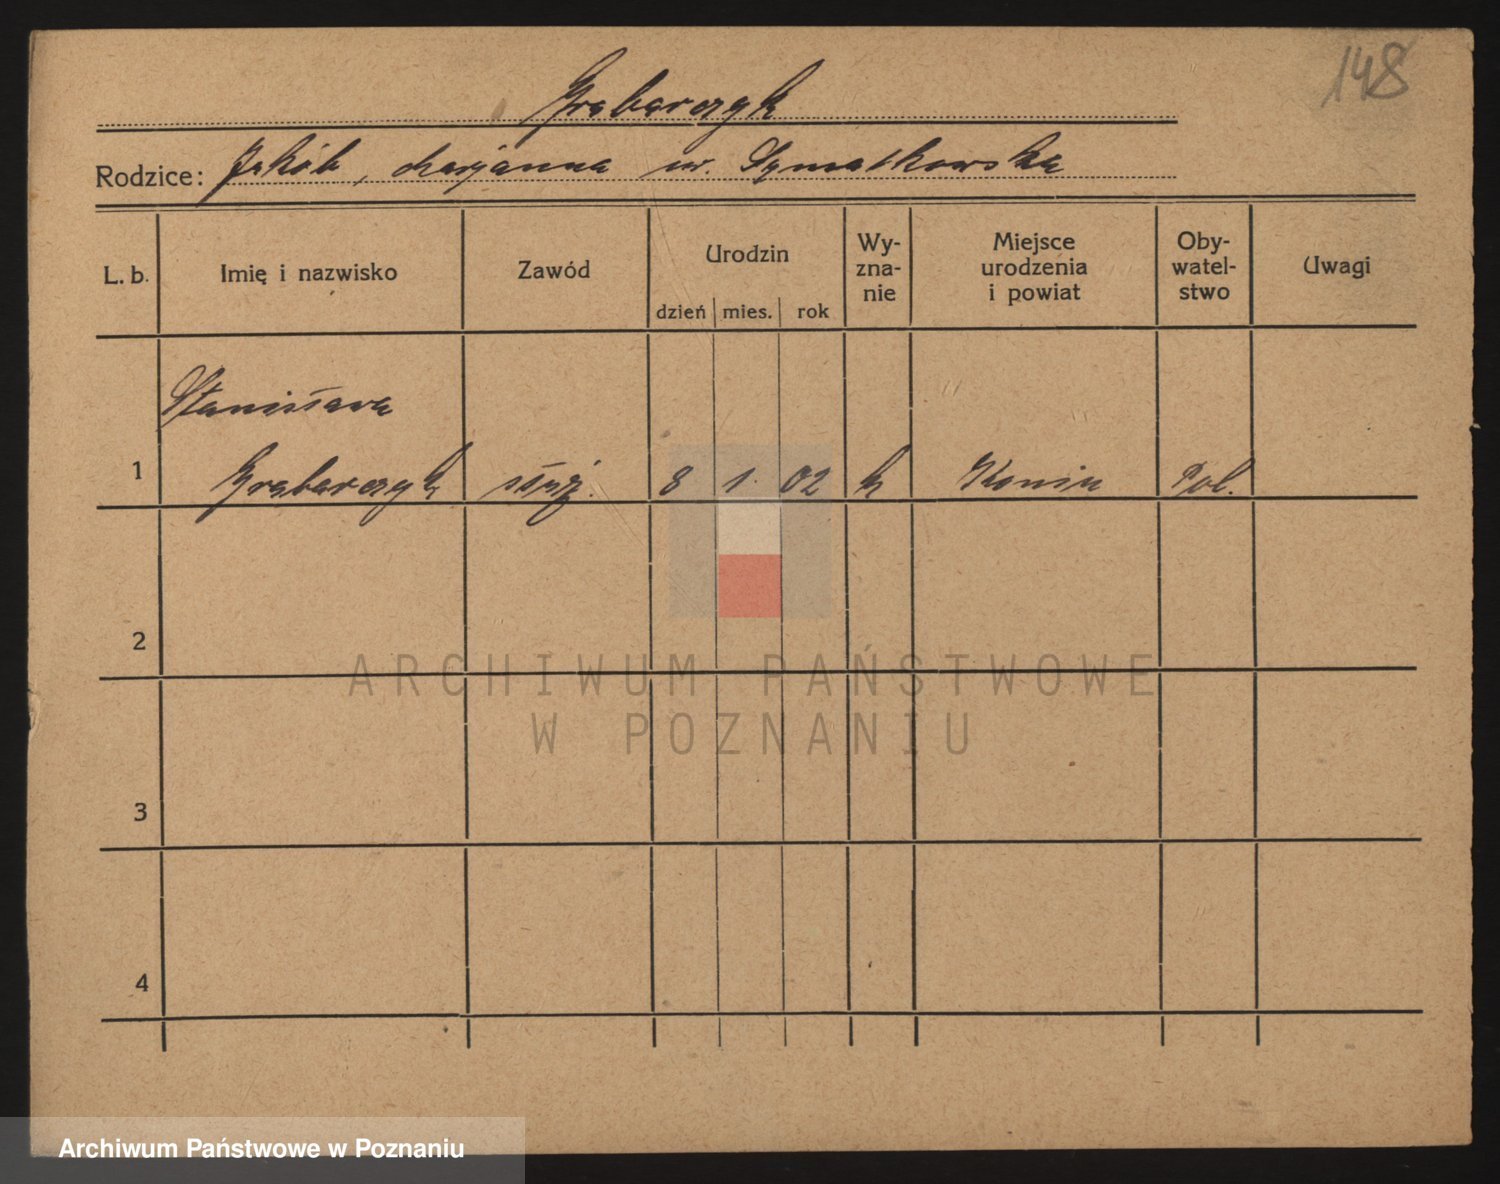 148
Grabarczyk
Rodzice: Jakób, Marjanna ur. Szmatkowska
L. b. Imię i nazwisko Zawód Urodzin dzień mies. rok Wy-zna-nie Miejsce urodzenia i powiat Oby-watel-stwo Uwagi
Stanisława
1 Grabarczyk służ. 8 1. 02 k Konin Pol.
2
ARCHIWUM PAŃSTWOWE
W POZNANIU
3
4
Archiwum Państwowe w Poznaniu